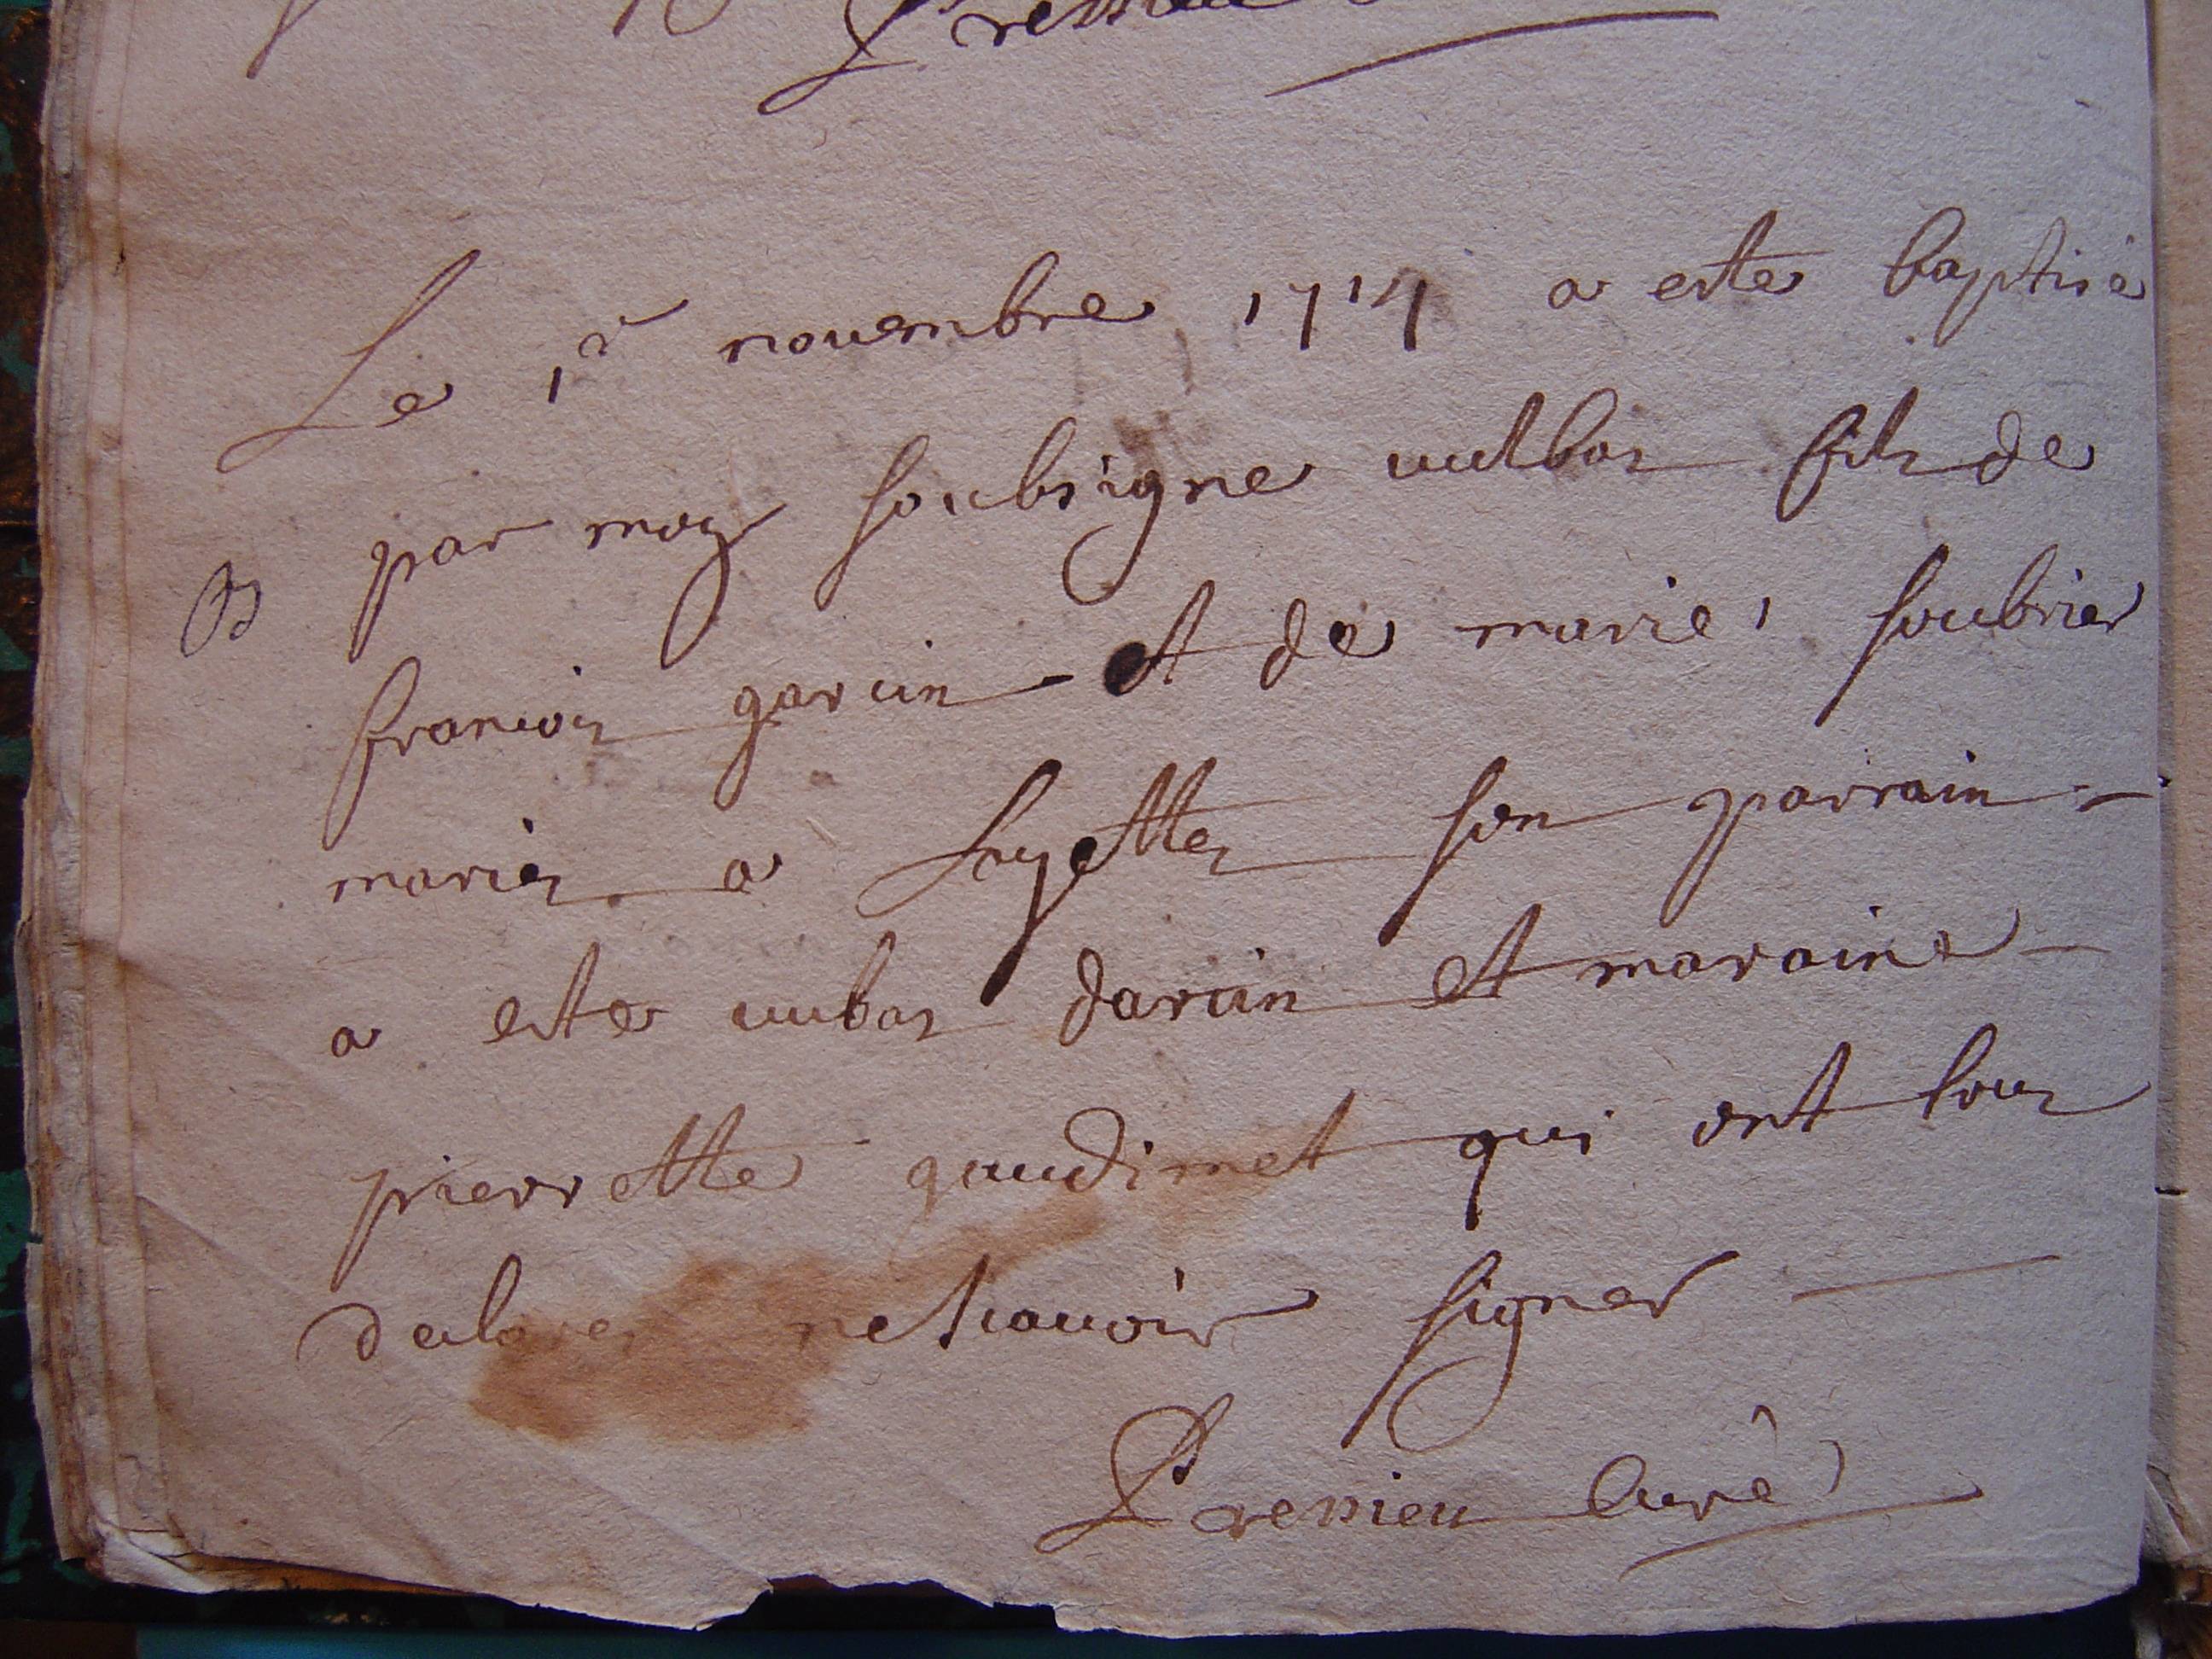 Le 1er nouembre 1714 a este baptisé
par moy soubsigne vulbas fils de
B
francois garcin et de marie soubrier
maries a Loyettes son parrain
a este vubas darcin et maraine
pierrette gaudimet qui ont tous
declares ne scauoir signer
Pressieu Curé